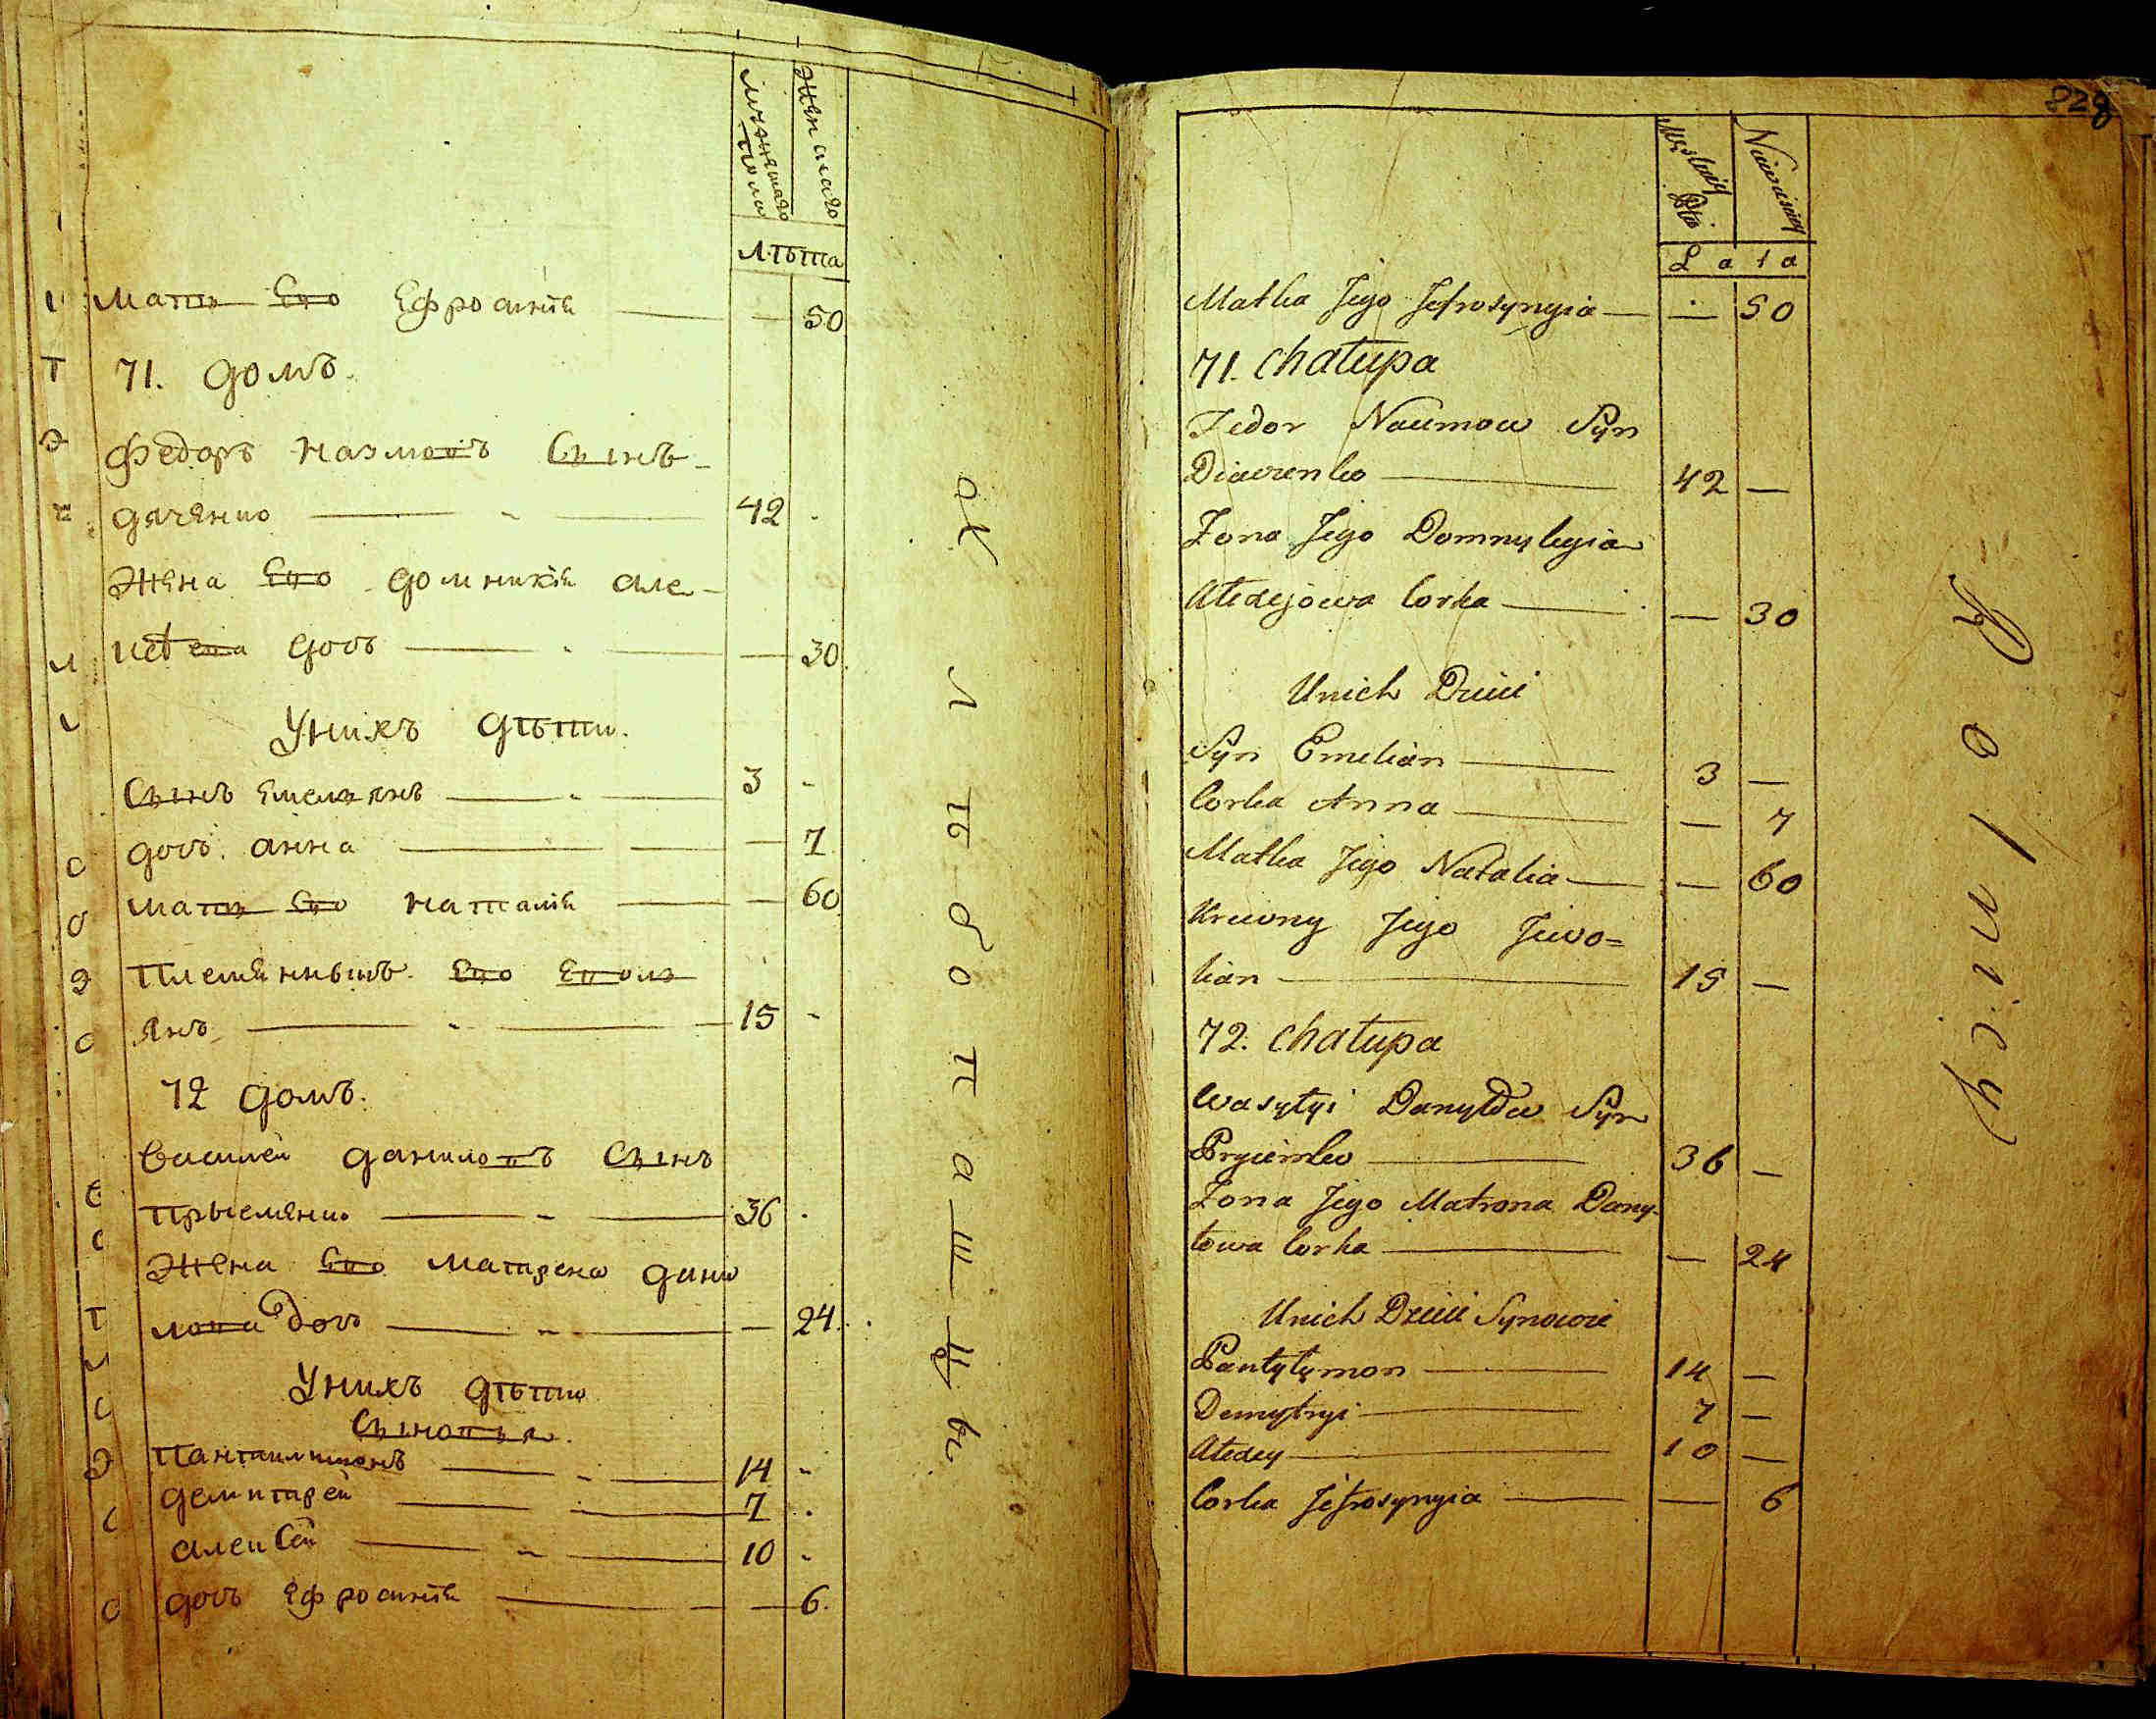 мужескаго пола
женскаго
лѣта
мать Его Ефросинія — 50
71. домъ.
Федоръ наумовъ Сынъ
дяченко — 42
жена Его домникія але-
ксѣева дочь — 30
Унихъ дѣти.
Сынъ Емельянъ — 3 -
дочь анна — 7
мать Его наталія — 60
племянныкъ Его Евола
янъ — 15 -
72 домъ.
василей даниловъ Сынъ
прыеменко — 36
жена Его матрена дани
лова дочь — 24.
Унихъ дѣти
Сыновья.
пантилимонъ — 14 -
демитрей — 7
алексей — 10
дочь Ефросинія — 6.
хлѣбопашцы
828
Męskiej Płci
Niewiasciey
Lata
Matka Jego Jefrosynyia — — 50
71. Chałupa
Fedor Naumow Syn
Diaczenko — 42 —
Żona Jego Domnykyia
Alexejowa Corka — — 30
Unich Dzieci
Syn Emelian — 3 —
Corka Anna — — 7
Matka Jego Natalia — — 60
Krewny Jego Jewo=
lian — 15 —
72. Chałupa
Wasyłyi Danyłow Syn
Pryiemko — 36 —
Żona Jego Matrona Dany-
łowa Corka — — 24
Unich Dzieci Synowie
Pantyłymon — 14 —
Demytryi — 7 —
Alexey — 10 —
Corka Jefrosynyia — — 6
Rolnicy